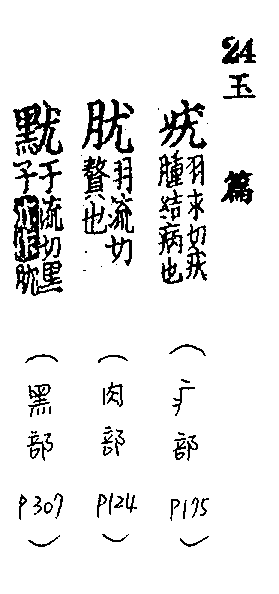 24玉篇
疣
羽求切疾
腫結病也
(疒部 P175)
肬
羽流切
贅也
(肉部 P124)
于流切黑
子 肬
(黑部 P307)